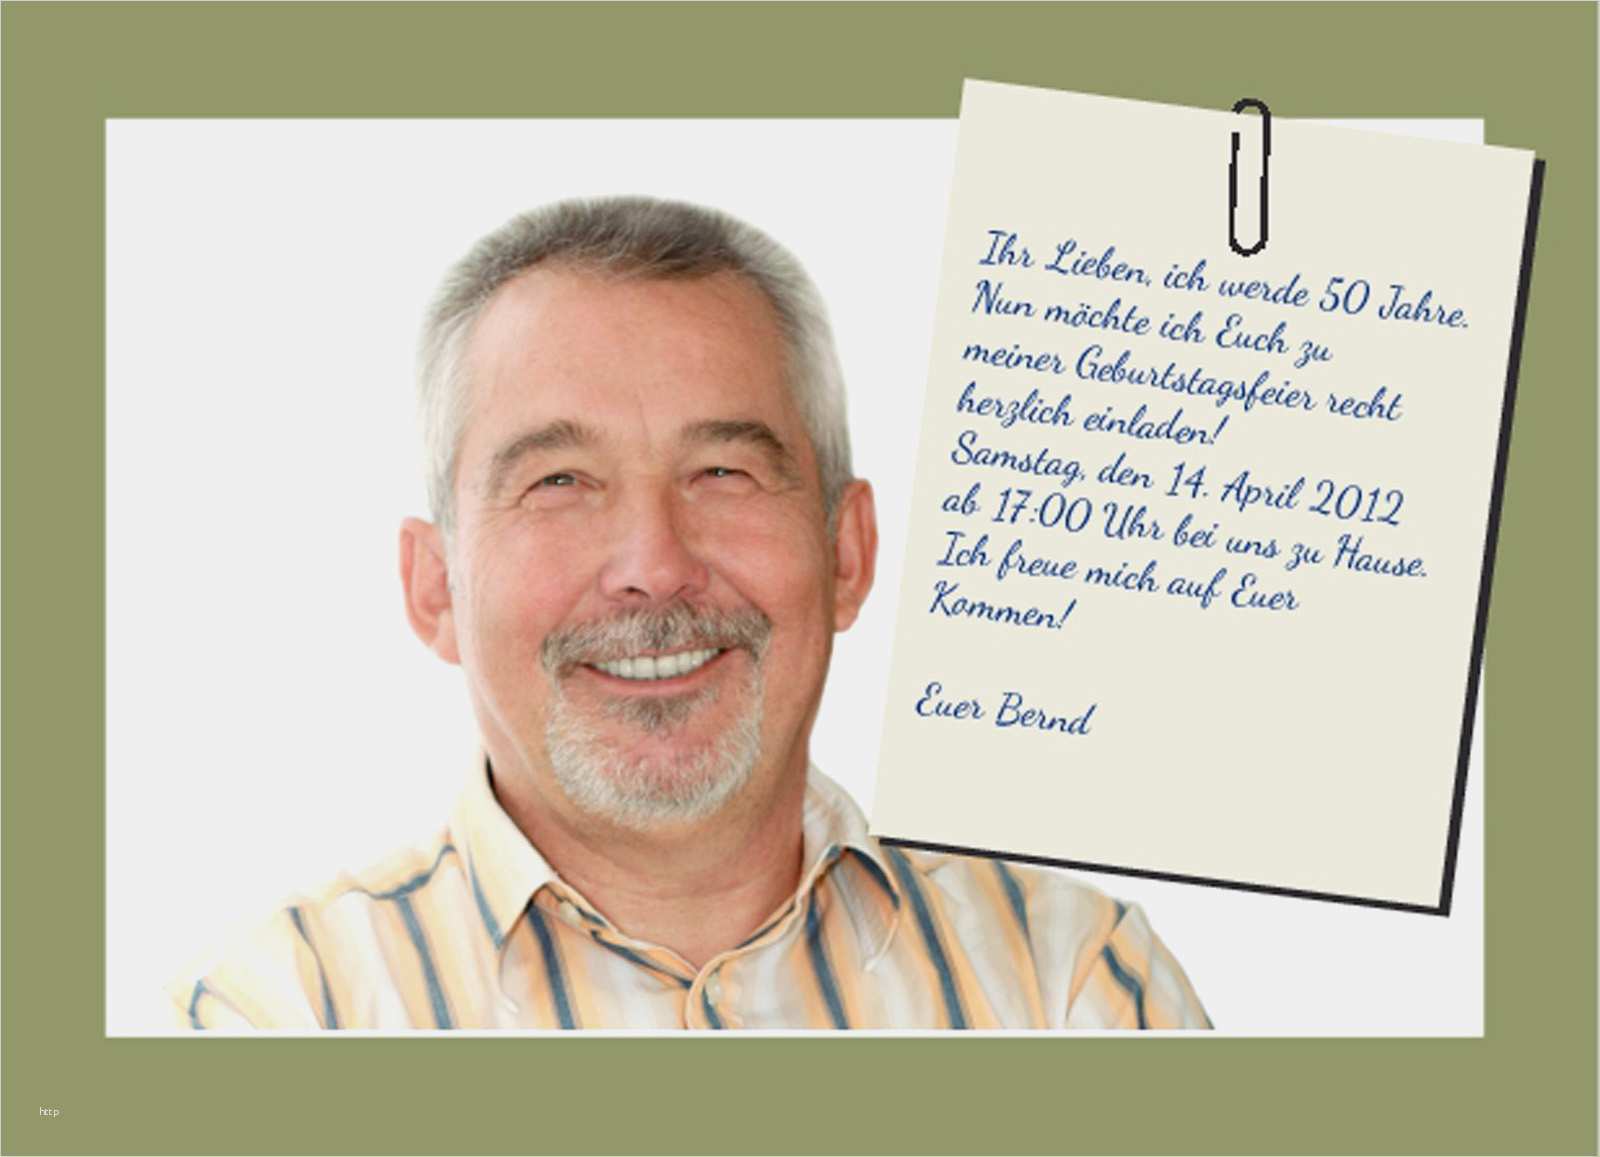 Ihr Lieben, ich werde 50 Jahre.
Nun möchte ich Euch zu
meiner Geburtstagsfeier recht
herzlich einladen!
Samstag, den 14. April 2012
ab 17:00 Uhr bei uns zu Hause.
Ich freue mich auf Euer
Kommen!
Euer Bernd
http